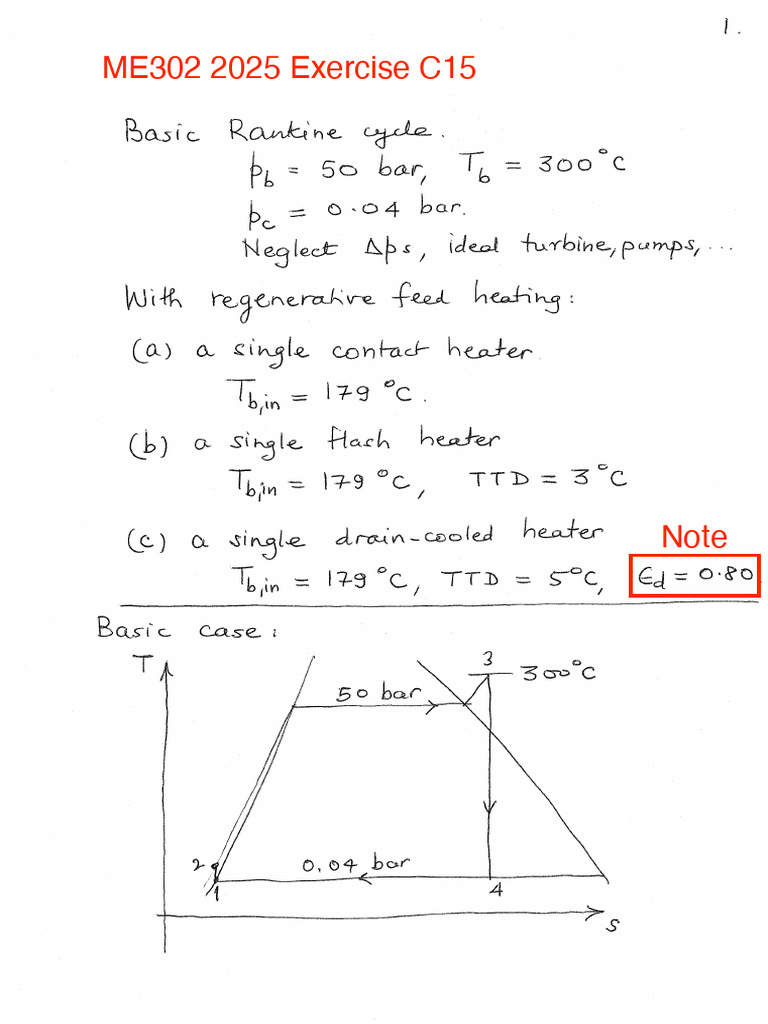 1.
ME302 2025 Exercise C15
Basic Rankine cycle.
p_b = 50 bar, T_b = 300°C
p_c = 0.04 bar.
Neglect Δps, ideal turbine, pumps, ...
With regenerative feed heating:
(a) a single contact heater.
T_b,in = 179 °C.
(b) a single flash heater
T_b,in = 179 °C, TTD = 3°C
(c) a single drain-cooled heater
Note
T_b,in = 179 °C, TTD = 5°C, ε_d = 0.80
Basic case:
T
3
300°C
50 bar
2
0.04 bar
1
4
s